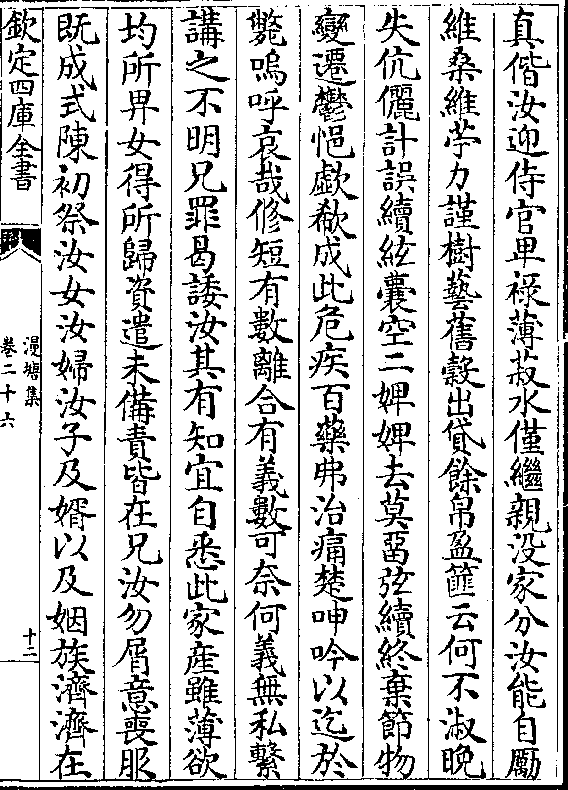 真偕汝迎侍官卑祿薄菽水僅繼親没家分汝能自勵
維桑維苧力謹樹藝舊糓出貸餘帛盈篚云何不淑晩
失伉儷計誤續絃囊空二婢婢去莫畱弦續終棄節物
變遷鬱悒歔欷成此危疾百藥弗治痛楚呻吟以迄於
斃嗚呼哀哉修短有數離合有義數可奈何義無私繫
講之不明兄罪曷諉汝其有知宜自悉此家産雖薄欲
均所畀女得所歸資遣未備責皆在兄汝勿屑意喪服
既成式陳初祭汝女汝婦汝子及婿以及姻族濟濟在
欽定四庫全書
漫塘集
卷二十六
十二